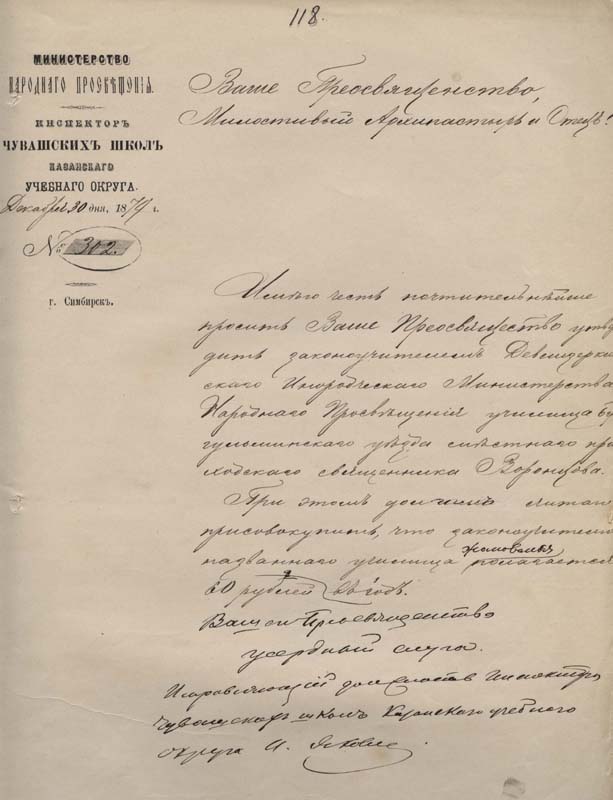 118.
МИНИСТЕРСТВО
НАРОДНАГО ПРОСВѢЩЕНІЯ.
ИНСПЕКТОРЪ
ЧУВАШСКИХЪ ШКОЛЪ
КАЗАНСКАГО
УЧЕБНАГО ОКРУГА.
Декабря 30 дня, 1879 г.
№ 302.
г. Симбирскъ.
Ваше Преосвященство,
Милостивый Архипастырь и Отецъ!
Имѣю честь почтительнѣйше
просить Ваше Преосвященство утвер
дить законоучителемъ
скаго Инородческаго Министерства
Народнаго Просвѣщенія училища Бу
гульминскаго уѣзда мѣстнаго при
ходскаго священника Воронцова.
При этомъ долгомъ считаю
присовокупить, что законоучителю
названнаго училища жалованья полагается
60 рублей въ годъ.
Вашего Преосвященства
усердный слуга.
Исправляющій должность Инспектора
Чувашскихъ школъ Казанскаго учебнаго
округа И. Яковлевъ